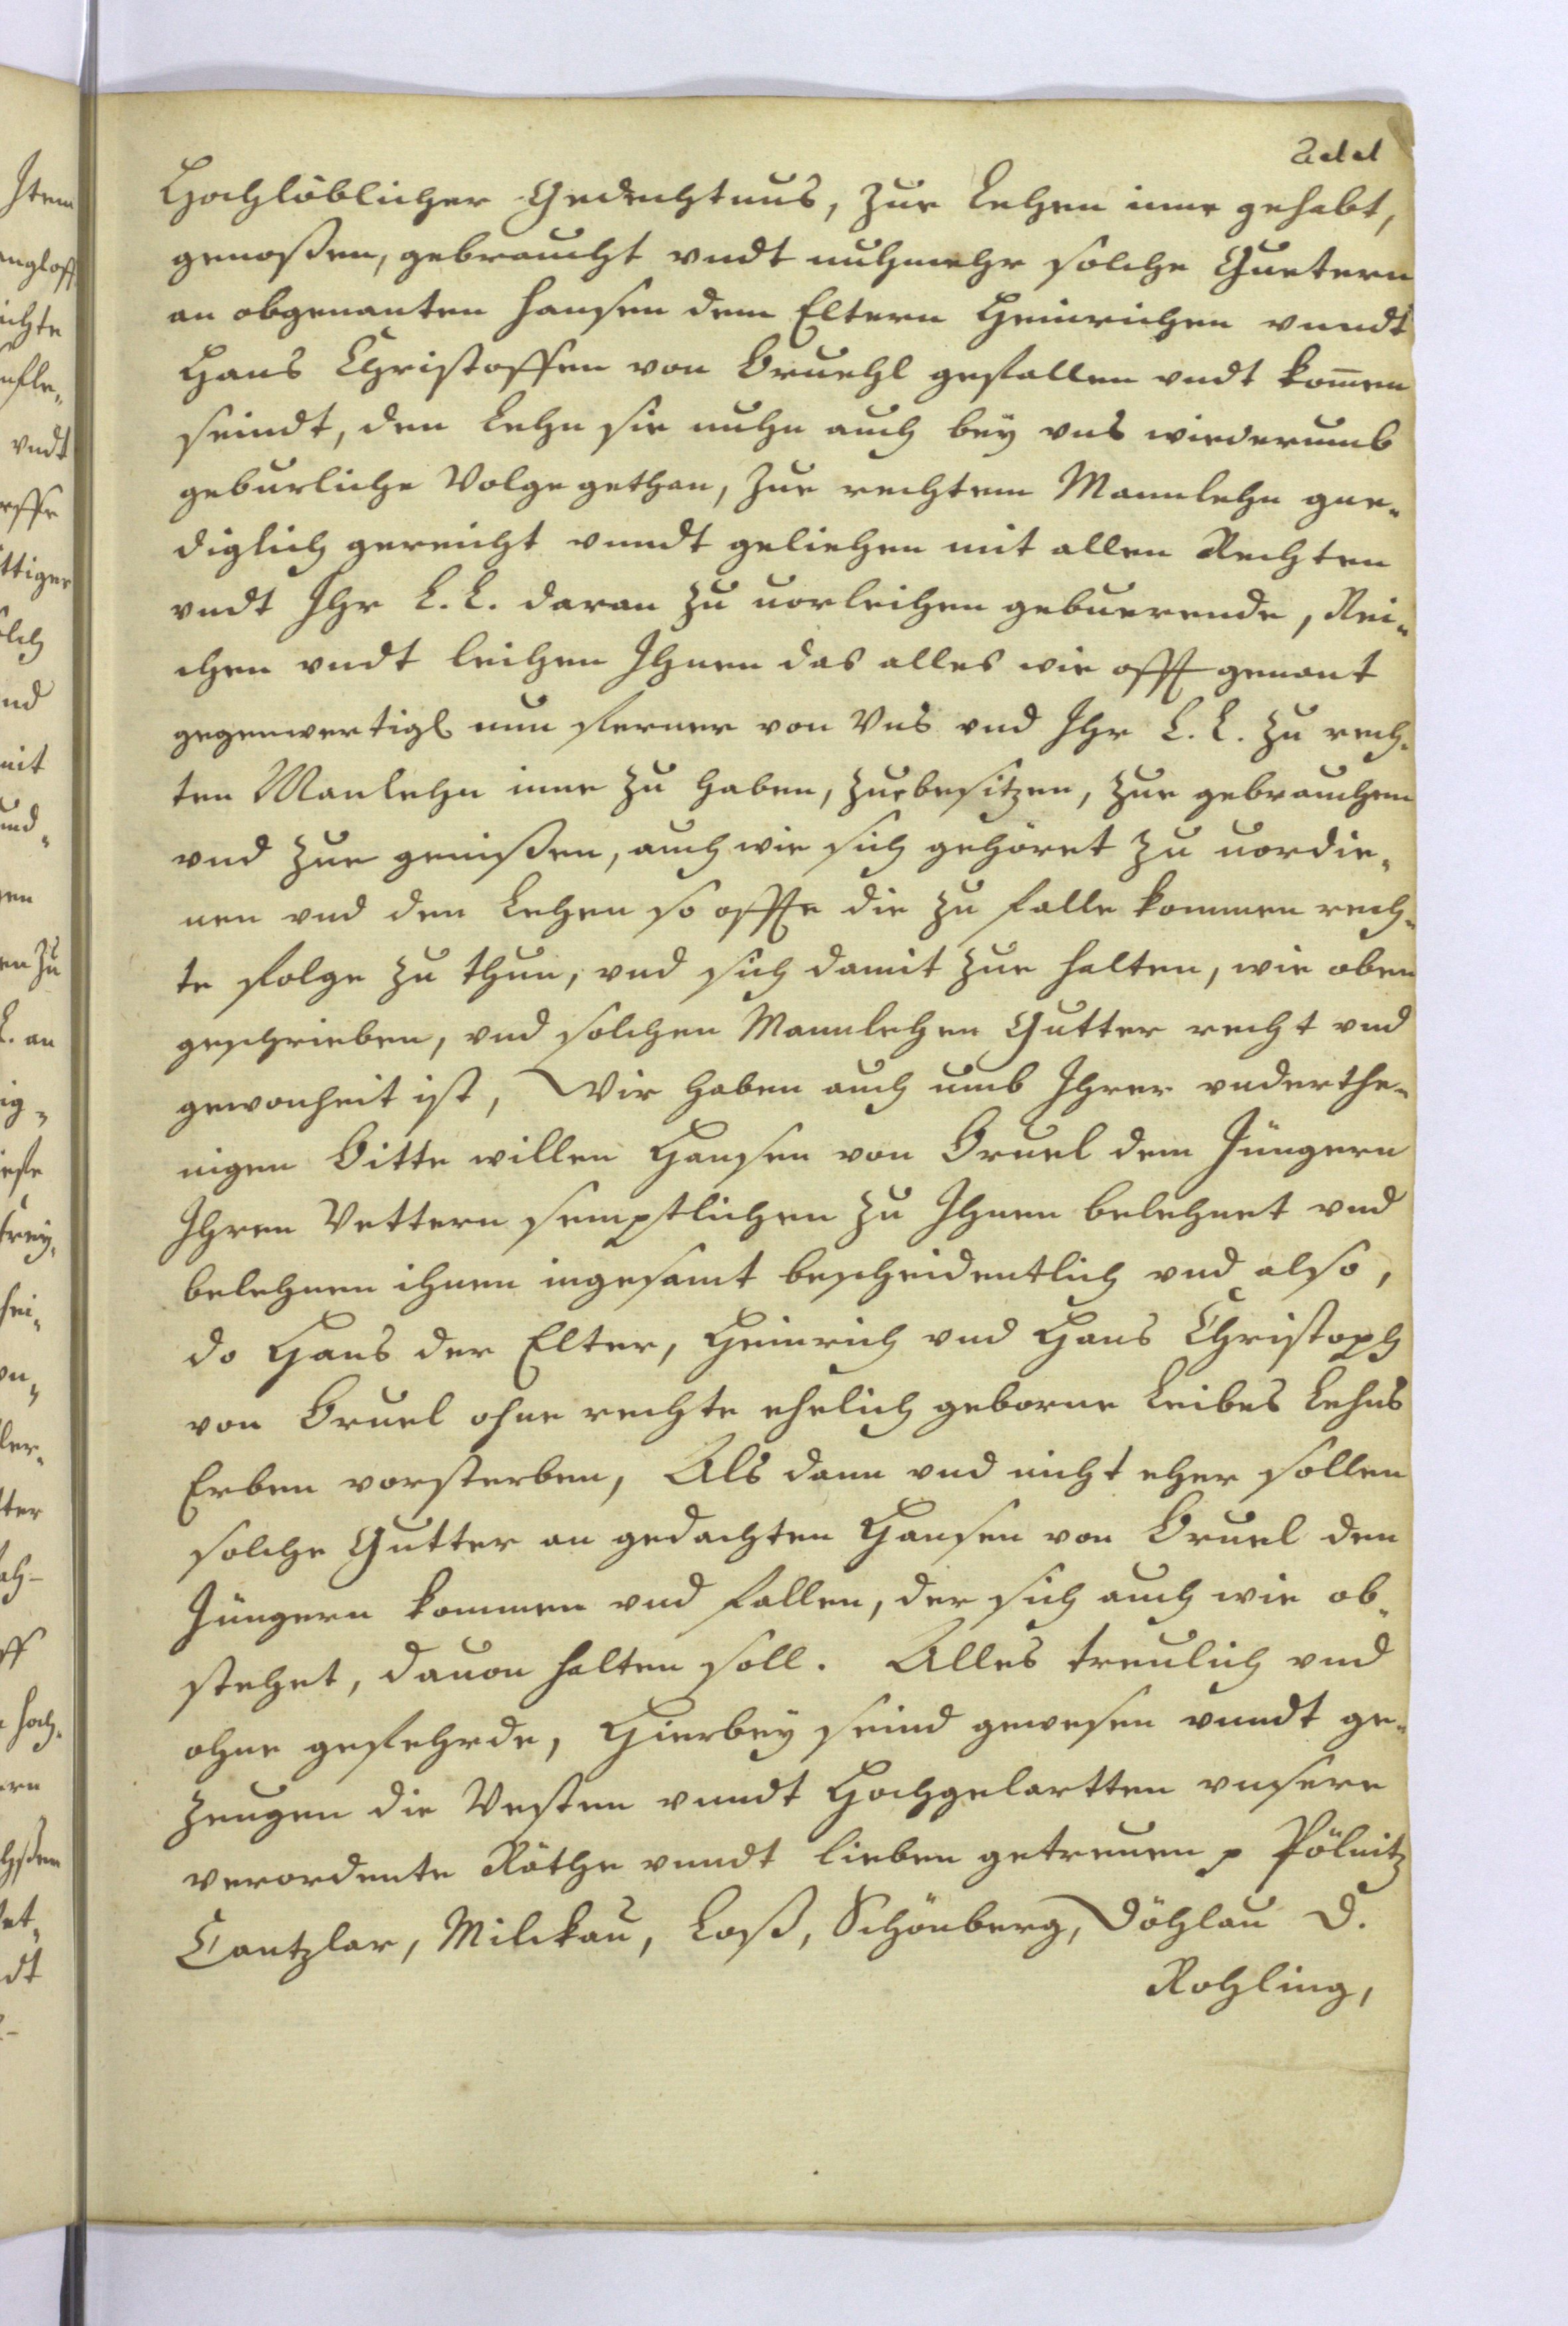 Hochlöblicher Gedechtnus, zur Lehen inne gehabt,
genoßen, gebraucht vndt nuhmehr solche Guetern
an obgenanten Hansen dem Eltern Heinrichen vnndt
Hans Christoffen von Bruehl gefallen vndt kom̅en
seindt, den Lehn sie nuhn auch bey vns wiederumb
geburliche Volge gethan, zue rechtem Mannlehn gne-
diglich gereicht vnndt geliehen mit allen Rechten
vndt Ihr L. L. daran zu uorleihen gebuerende, Rei-
chen vndt leihen Ihnen das alles wie offt genant
gegenwertigl nun ferner von Vns vnd Ihr L. L. zu rech-
ten Manlehn inne zu haben, zue besitzen, zue gebrauchen
vnd zue genißen, auch wie sich gehöret zu uordie-
nen vnd den Lehen so offte die zu falle kommen rech-
te folge zu thun, vnd sich damit zue halten, wie oben
geschrieben, vnd solchen Mannlehen Gutter recht vnd
gewonheit ist, Wir haben auch umb Ihrer vnderthe-
nigen Bitte willen Hansen von Bruel dem Jüngern
Ihren Vettern semptlichen zu Ihnen belehnet vnd
belehnen ihnen ingesamt bescheidentlich vnd also,
do Hans der Elter, Heinrich vnd Hans Christoph
von Bruel ohne rechte ehelich geborne Leibes Lehns
Erben vorsterben, Als dann vnd nicht eher sollen
solche Gutter an gedachten Hansen von Bruel den
Jüngern kommen vnd fallen, der sich auch wie ob-
stehet, dauon halten soll. Alles treulich vnd
ohne gefehrde, Hierbey seind gewesen vnndt ge-
zeugen die Vesten vnndt Hochgelartten vnsere
verordente Räthe vnndt lieben getreuen p Pölnitz
Cantzlar, Milckau, Loß, Schönberg, Döhlau D.
Rohling,